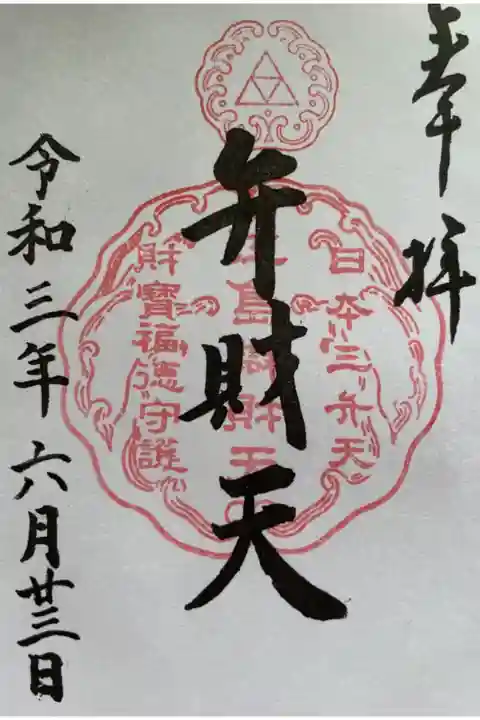 奉拝
日本三弁天
江島辨財天
財寶福徳守護
弁財天
令和三年六月廿三日